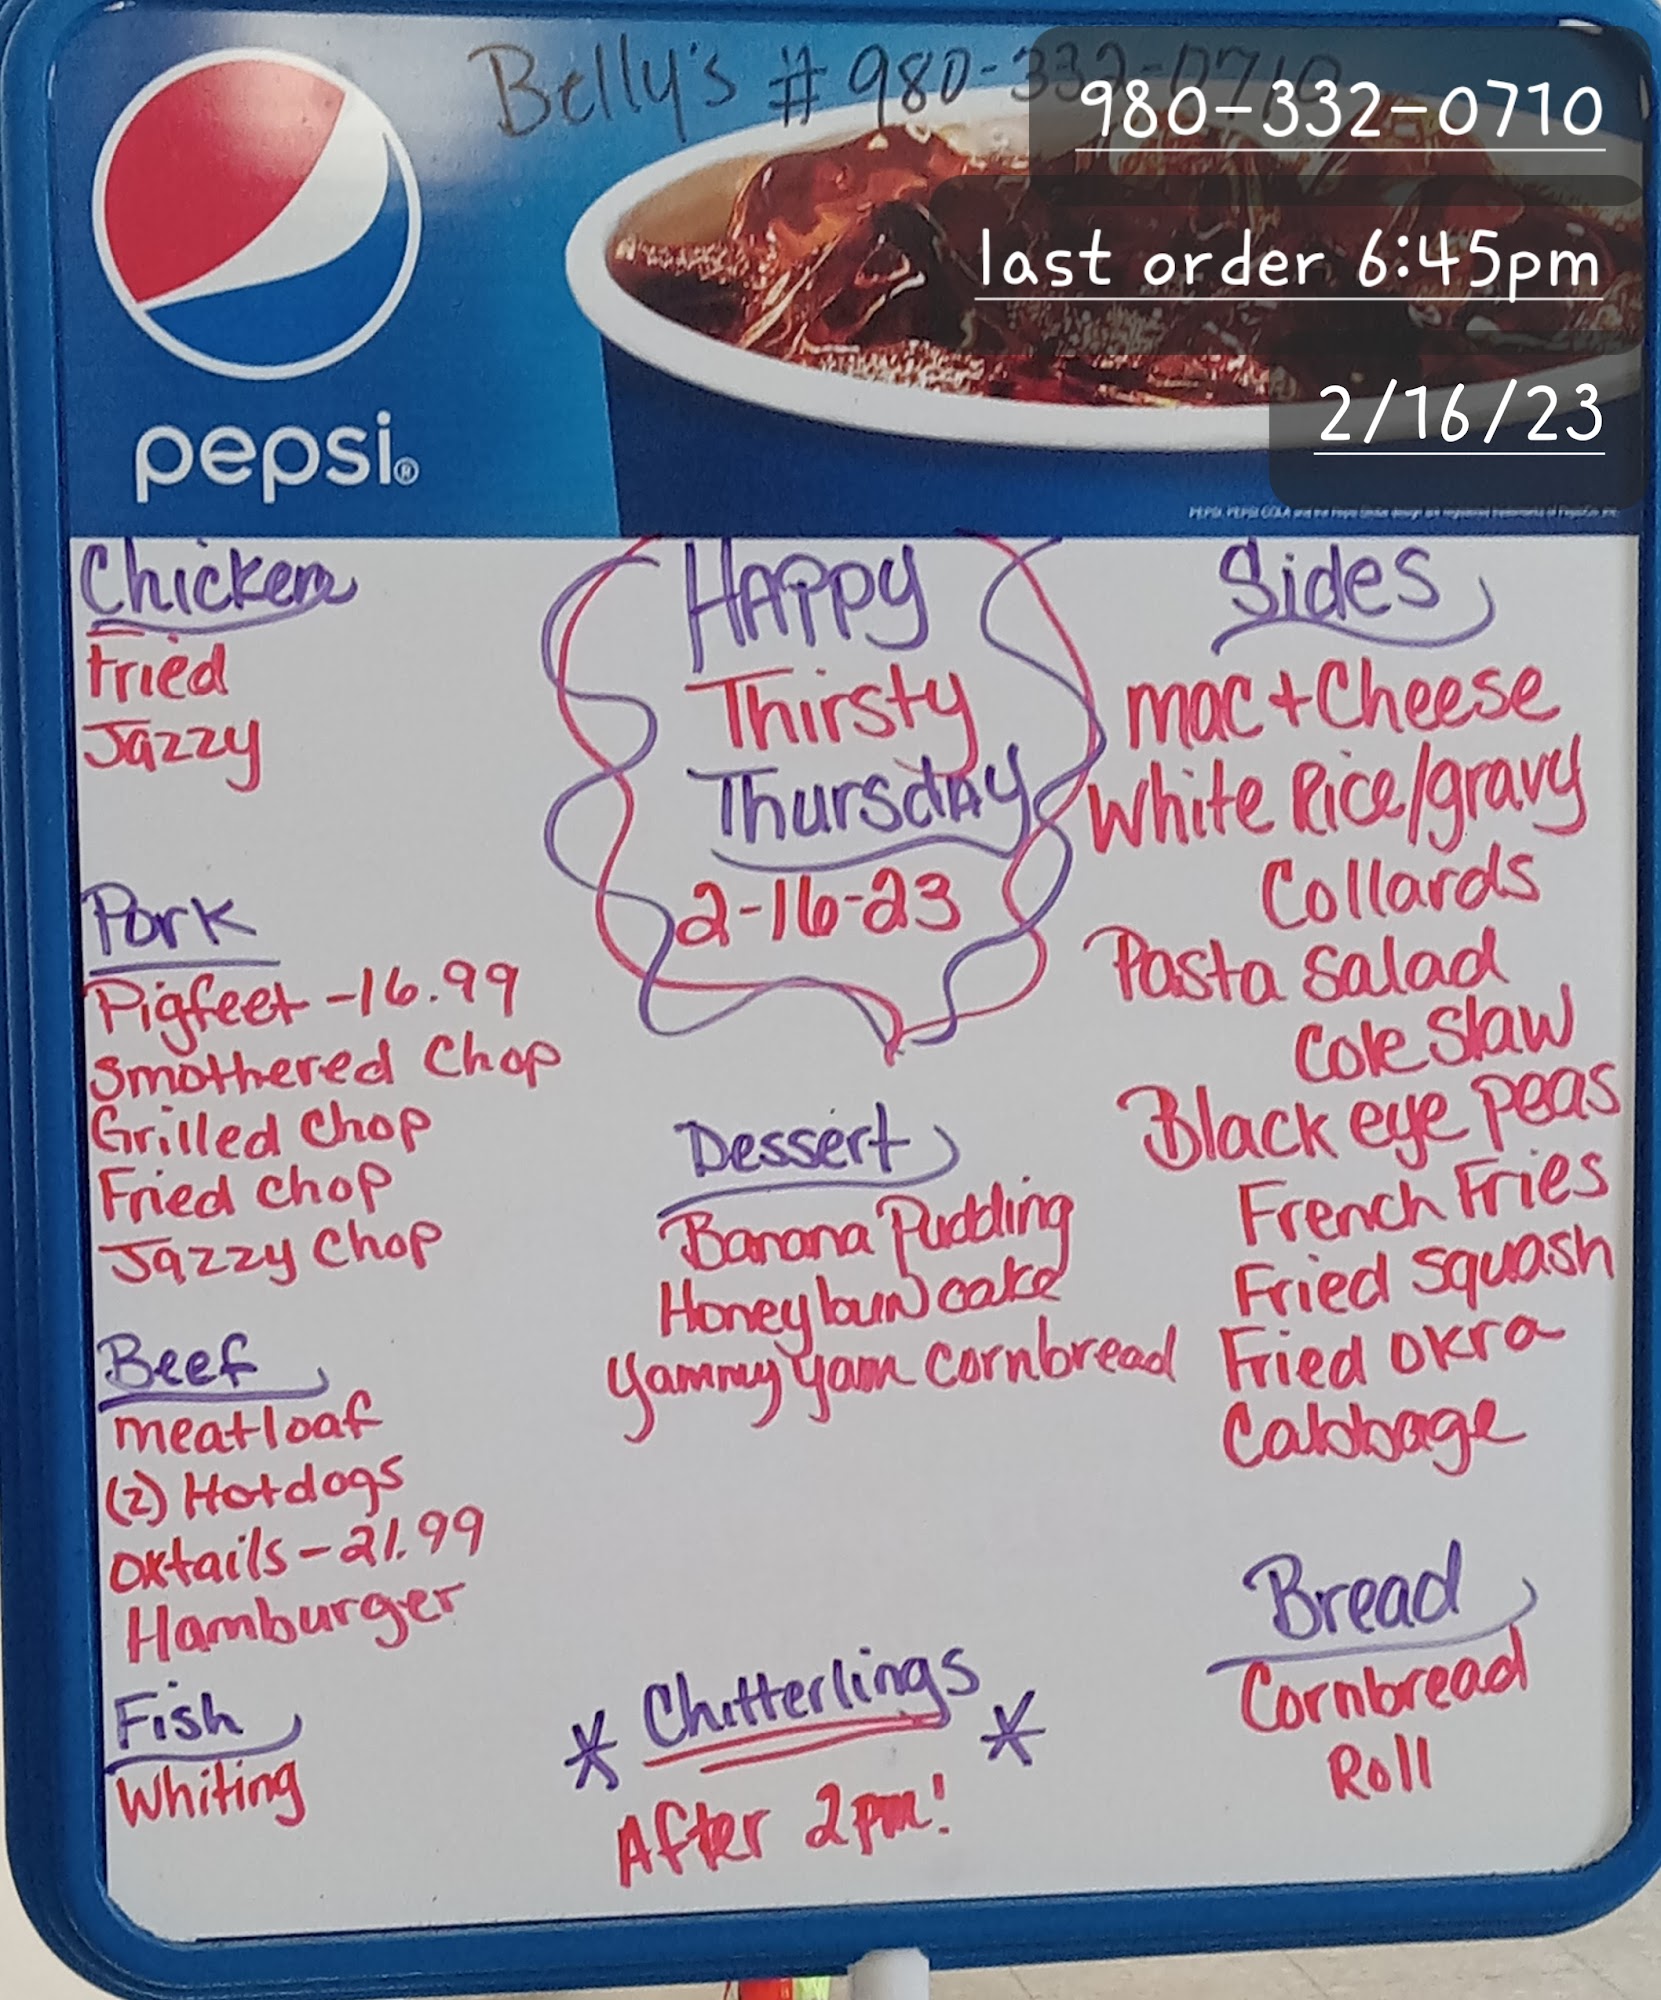 Belly's # 980-332-0710
980-332-0710
last order 6:45pm
2/16/23
pepsi®
Chicken
Fried
Jazzy
Pork
Pigfeet - 16.99
Smothered Chop
Grilled Chop
Fried Chop
Jazzy Chop
Beef
Meatloaf
(2) Hotdogs
Oxtails - 21.99
Hamburger
Fish
Whiting
Happy
Thirsty
Thursday
2-16-23
Dessert
Banana Pudding
Honeybun cake
Yammy Yam Cornbread
* Chitterlings *
After 2pm!
Sides
Mac + Cheese
White Rice/gravy
Collards
Pasta Salad
Cole Slaw
Black eye peas
French Fries
Fried Squash
Fried okra
Cabbage
Bread
Cornbread
Roll